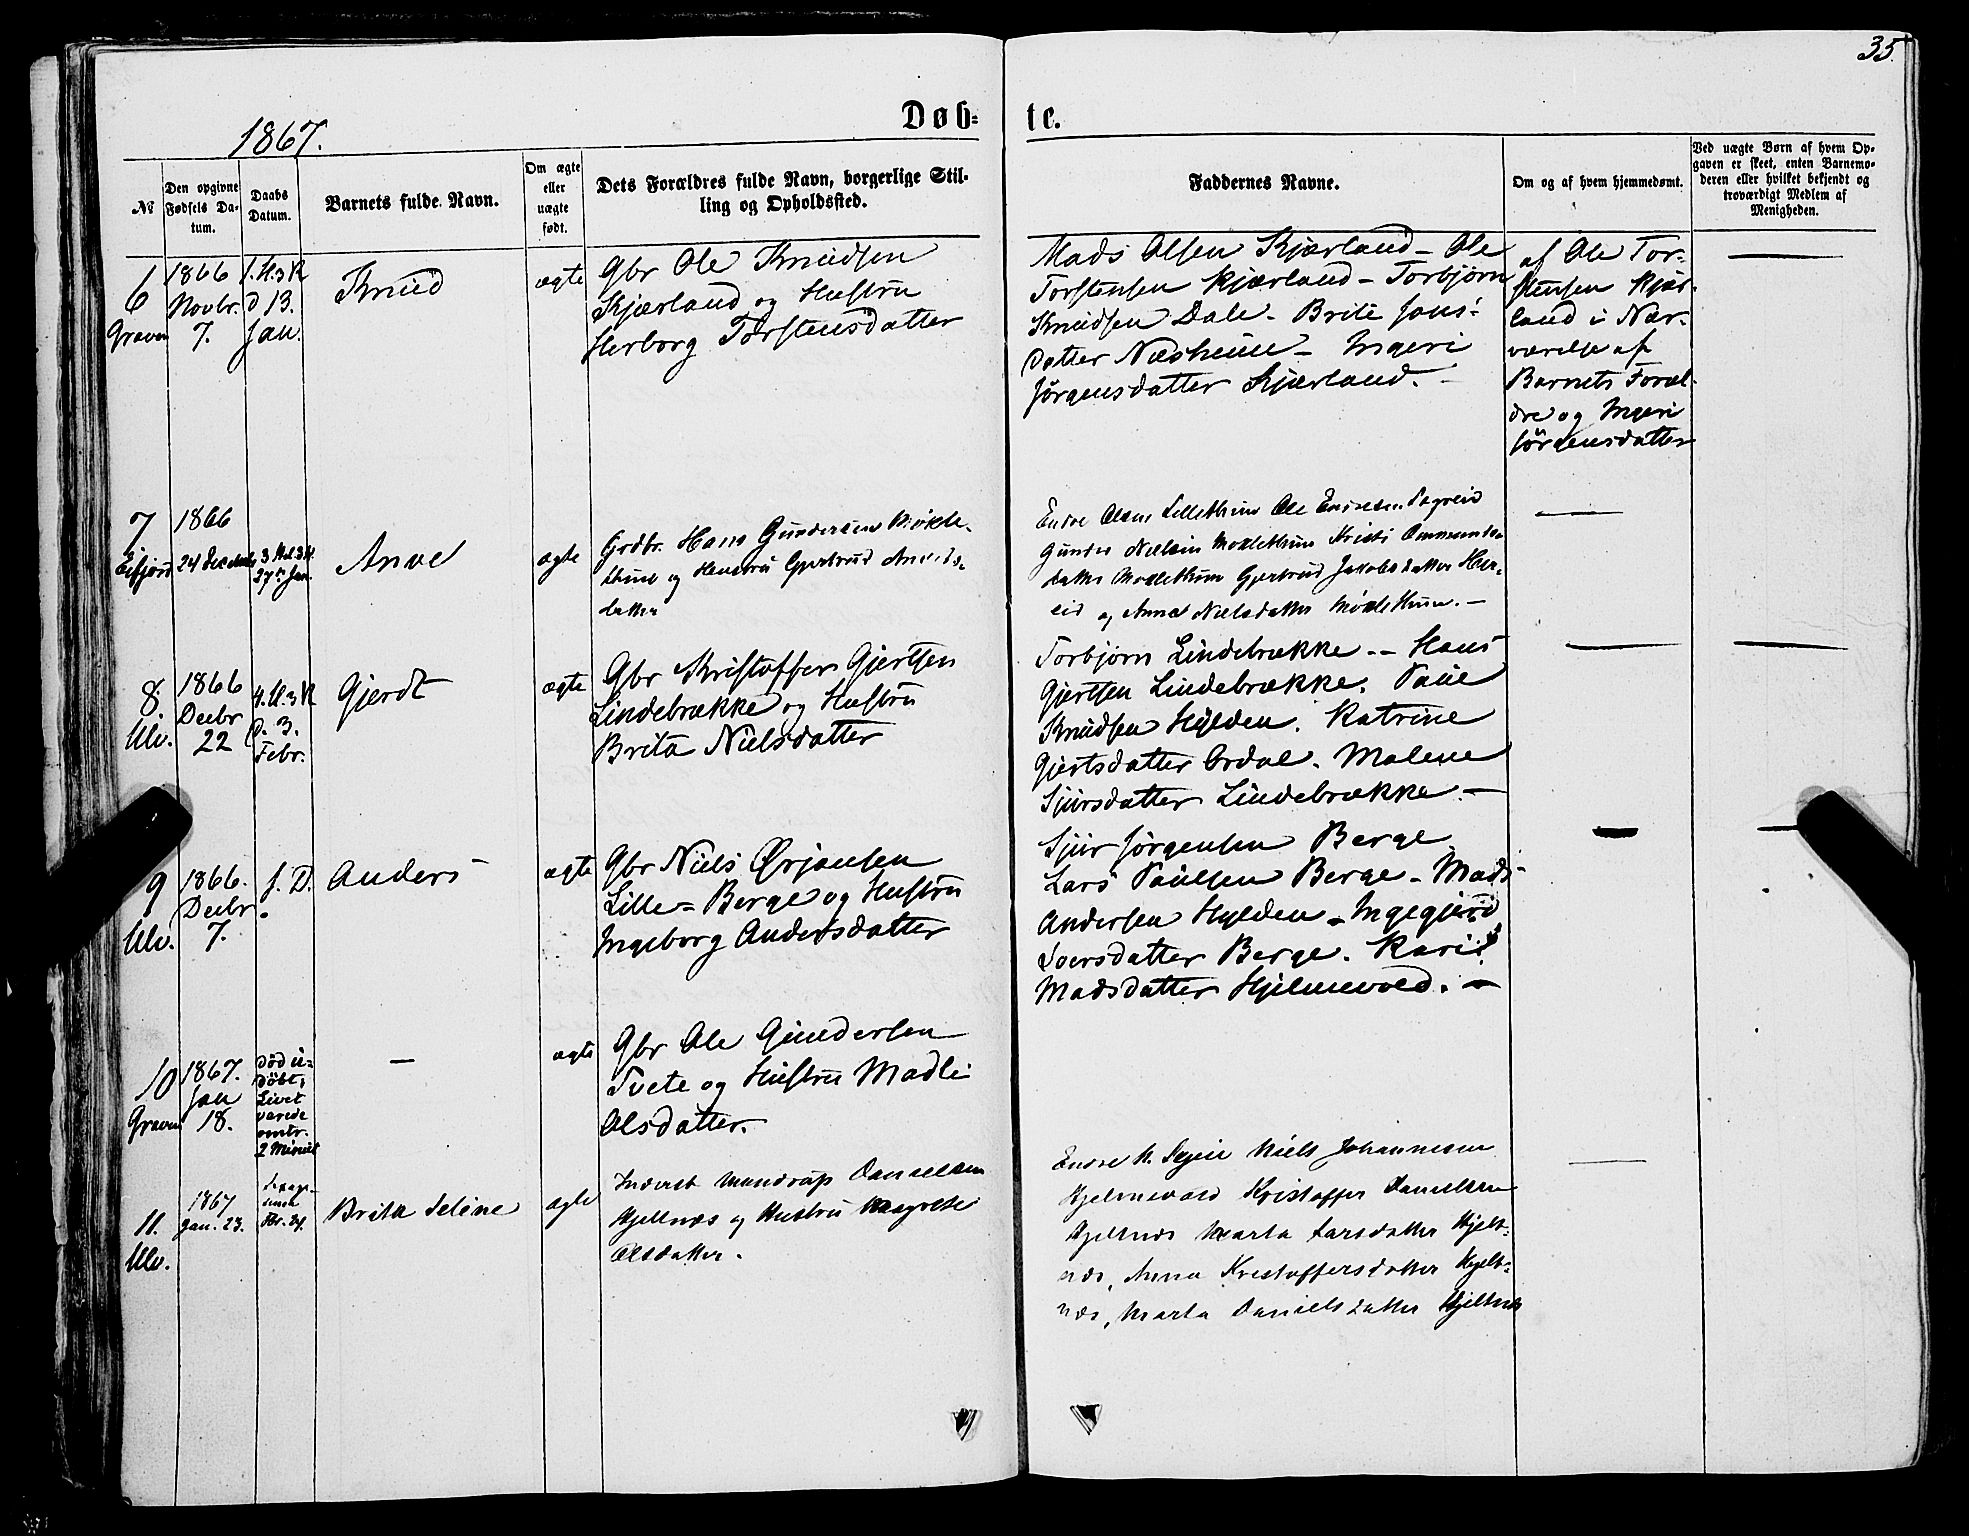 35.
Døb=
te.
1867.
№
Den opgivne Fødsels Datum.
Daabs Datum.
Barnets fulde Navn.
Om ægte eller uægte født.
Dets Forældres fulde Navn, borgerlige Stilling og Opholdssted.
Faddernes Navne.
Om og af hvem hjemmedøbt.
Ved uægte Børn af hvem Opgaven er skeet, enten Barnemoderen eller hvilket bekjendt og troværdigt Medlem af Menigheden.
6
Graven
1866
Novbr.
7.
1. S. 3 K
d 13.
Jan.
Knud
ægte
Gbr Ole Knudsen
Kjærland og Hustru
Herborg Torstensdatter
Mads Olsen Kjærland - Ole
Torstensen Kjærland - Torbjørn
Knudsen Dale - Brite Jons-
datter Næsheim - Ingeri
Jørgensdatter Kjærland. -
af Ole Tor-
stensen Kjær-
land i Nær-
værelse af
Barnets Foræl-
dre og Ingeri
Jørgensdatter
7
Eifjord
1866
24 December
27de Jan.
Arve
ægte
Grdbr. Hans Gundersen Møkle-
thun og Hustru Gjertrud Arveds-
datter
Endre Olsen Lillethun Ole Endresen
Gunder Nielsen Møklethun Kristi Ommunds-
datter Møklethun Gjertrud Jakobsdatter Her-
eid og Anna Nielsdatter Møklethun. -
8.
Ulv.
1866
Decbr
22
4. S. 3 K
d. 3.
Febr.
Gjerdt
ægte
Gbr Kristoffer Gjertsen
Lindebrække og Hustru
Brita Nielsdatter
Torbjørn Lindebrække - - Hans
Gjertsen Lindebrække. Paul
Knudsen Hylden. Katrine
Gjertsdatter Ordal. Malene
Sjursdatter Lindebrække. -
9
Ulv.
1866.
Decbr
7.
s. D.
Anders
ægte
Gbr Niels Ørjansen
Lille-Berge og Hustru
Ingeborg Andersdatter
Sjur Jørgensen Berge
Lars Paulsen Berge - Mads
Andersen Hylden - Ingegjerd
Iversdatter Berge. Kari
Madsdatter Hjelmevold. -
10
Graven
1867.
Jan
18.
Død u-
døbt,
Livet
varede
omtr.
2 Minut
-
ægte
Gbr Ole Gundersen
Tvete og Hustru Madli
Olsdatter.
11.
Ulv.
1867
Jan. 23.
Sexage-
sima
Fbr. 24.
Brita Seline
ægte
Inderst Mandrup Danielsen
Hjeltnæs og Hustru Margrete
Olsdatter.
Endre H. Niels Johannesen
Hjelmevold Kristoffer Danielsen
Hjeltnæs Marta Larsdatter Hjelt-
næs, Anna Kristoffersdatter Hjelt-
næs, Marta Danielsdatter Hjeltnæs